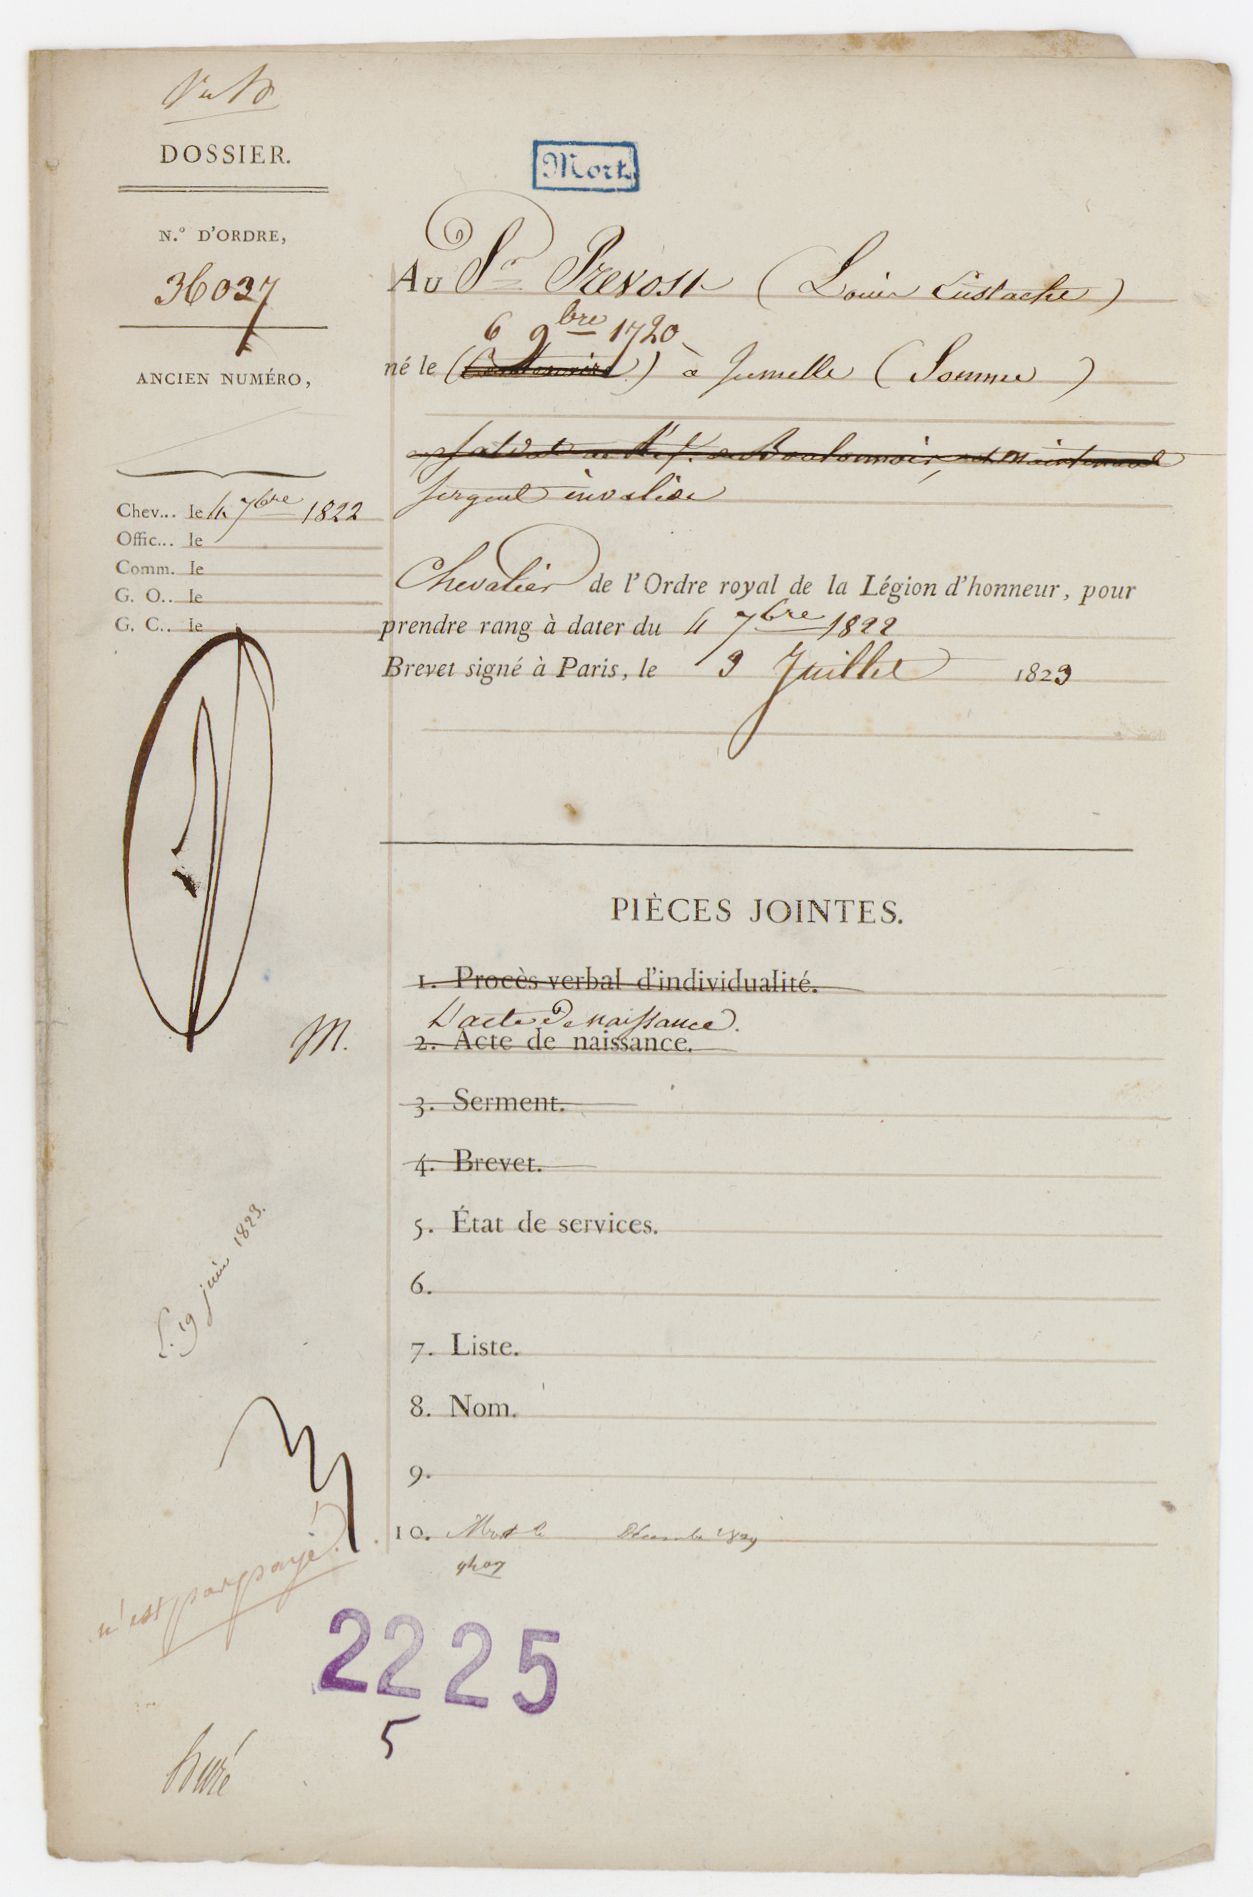 DOSSIER.
N.° D'ORDRE,
36037
ANCIEN NUMÉRO,
Chev... le 4 7bre 1822
Offic... le
Comm. le
G. O... le
G. C.. le
Mort.
Au Sr Prevost (Louis Eustache)
6 9bre 1720
né le ( ) à Jumelle (Somme)
Sergent invalide
Chevalier de l'Ordre royal de la Légion d'honneur, pour
prendre rang à dater du 4 7bre 1822
Brevet signé à Paris, le 9 Juillet 1823
PIÈCES JOINTES.
1. Procès verbal d'individualité.
L'acte de naissance.
M. 2. Acte de naissance.
3. Serment.
4. Brevet.
5. État de services.
6.
7. Liste.
8. Nom.
9.
10. Mort le Décembre
L. 19 juin 1823.
n'est pas payé.
2225
5
huré